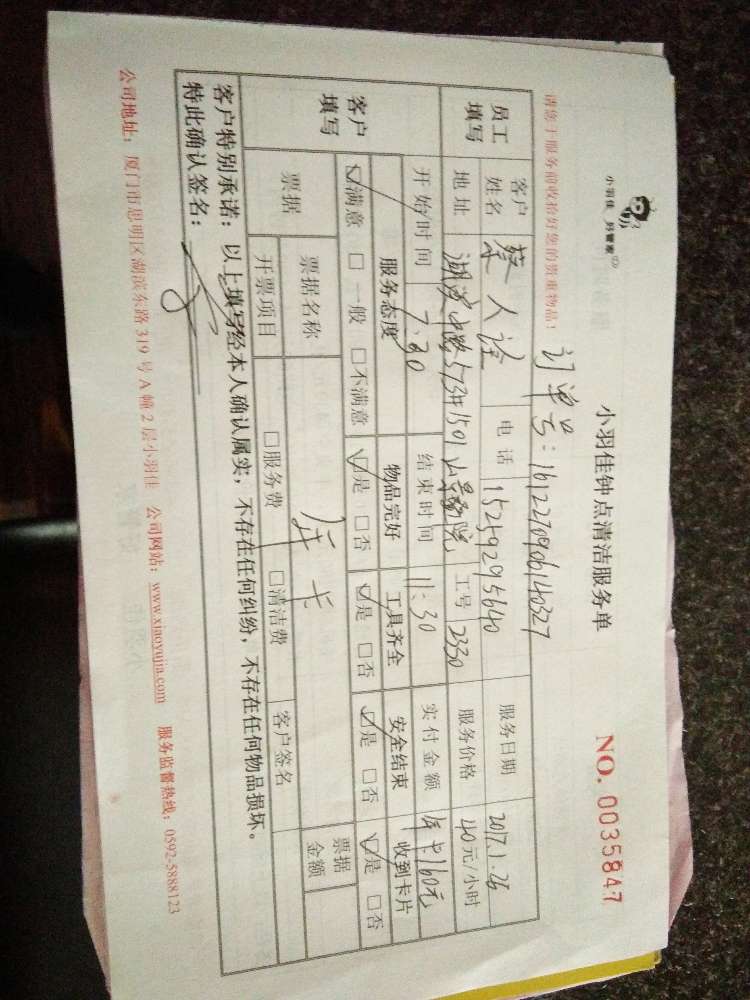 小羽佳 好管家
小羽佳钟点清洁服务单
NO. 0035847
请您于服务前收拾好您的贵重物品!
订单号:
员工填写
客户姓名 蔡人
电话 15259295640
服务日期 2017.1.26
地址 湖滨中路573#1501
工号 2330
服务价格 40元/小时
开始时间 7:30
结束时间 11:30
实付金额 年卡160元
客户填写
服务态度 物品完好 工具齐全 安全结束 收到卡片
☑满意 □一般 □不满意 ☑是 □否 ☑是 □否 ☑是 □否 ☑是 □否
票据
票据名称 年卡
票据金额
开票项目 □服务费 □清洁费
客户签名
客户特别承诺:以上填写经本人确认属实,不存在任何纠纷,不存在任何物品损坏。
特此确认签名:
公司地址:厦门市思明区湖滨东路319号A幢2层小羽佳 公司网站:www.xiaoyujia.com 服务监督热线:0592-5888123